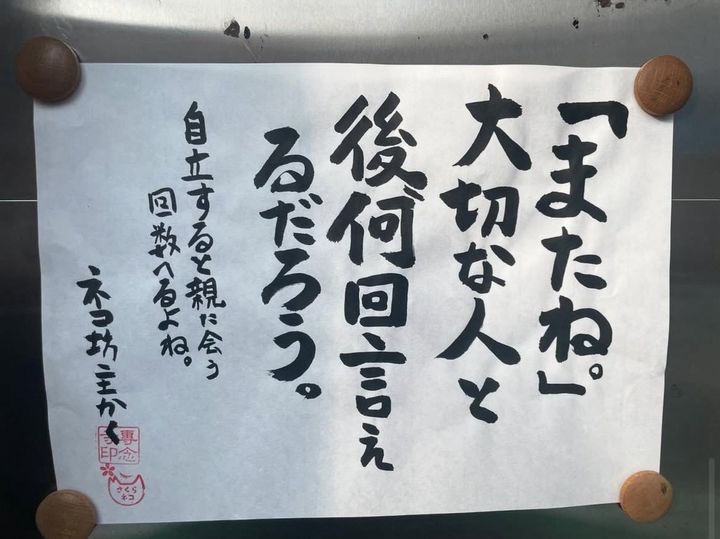 「またね。」
大切な人と
後、何回言え
るだろう。
自立すると親に会う
回数へるよね。
ネコ坊主かく
専念
寺印
さくら
ネコ